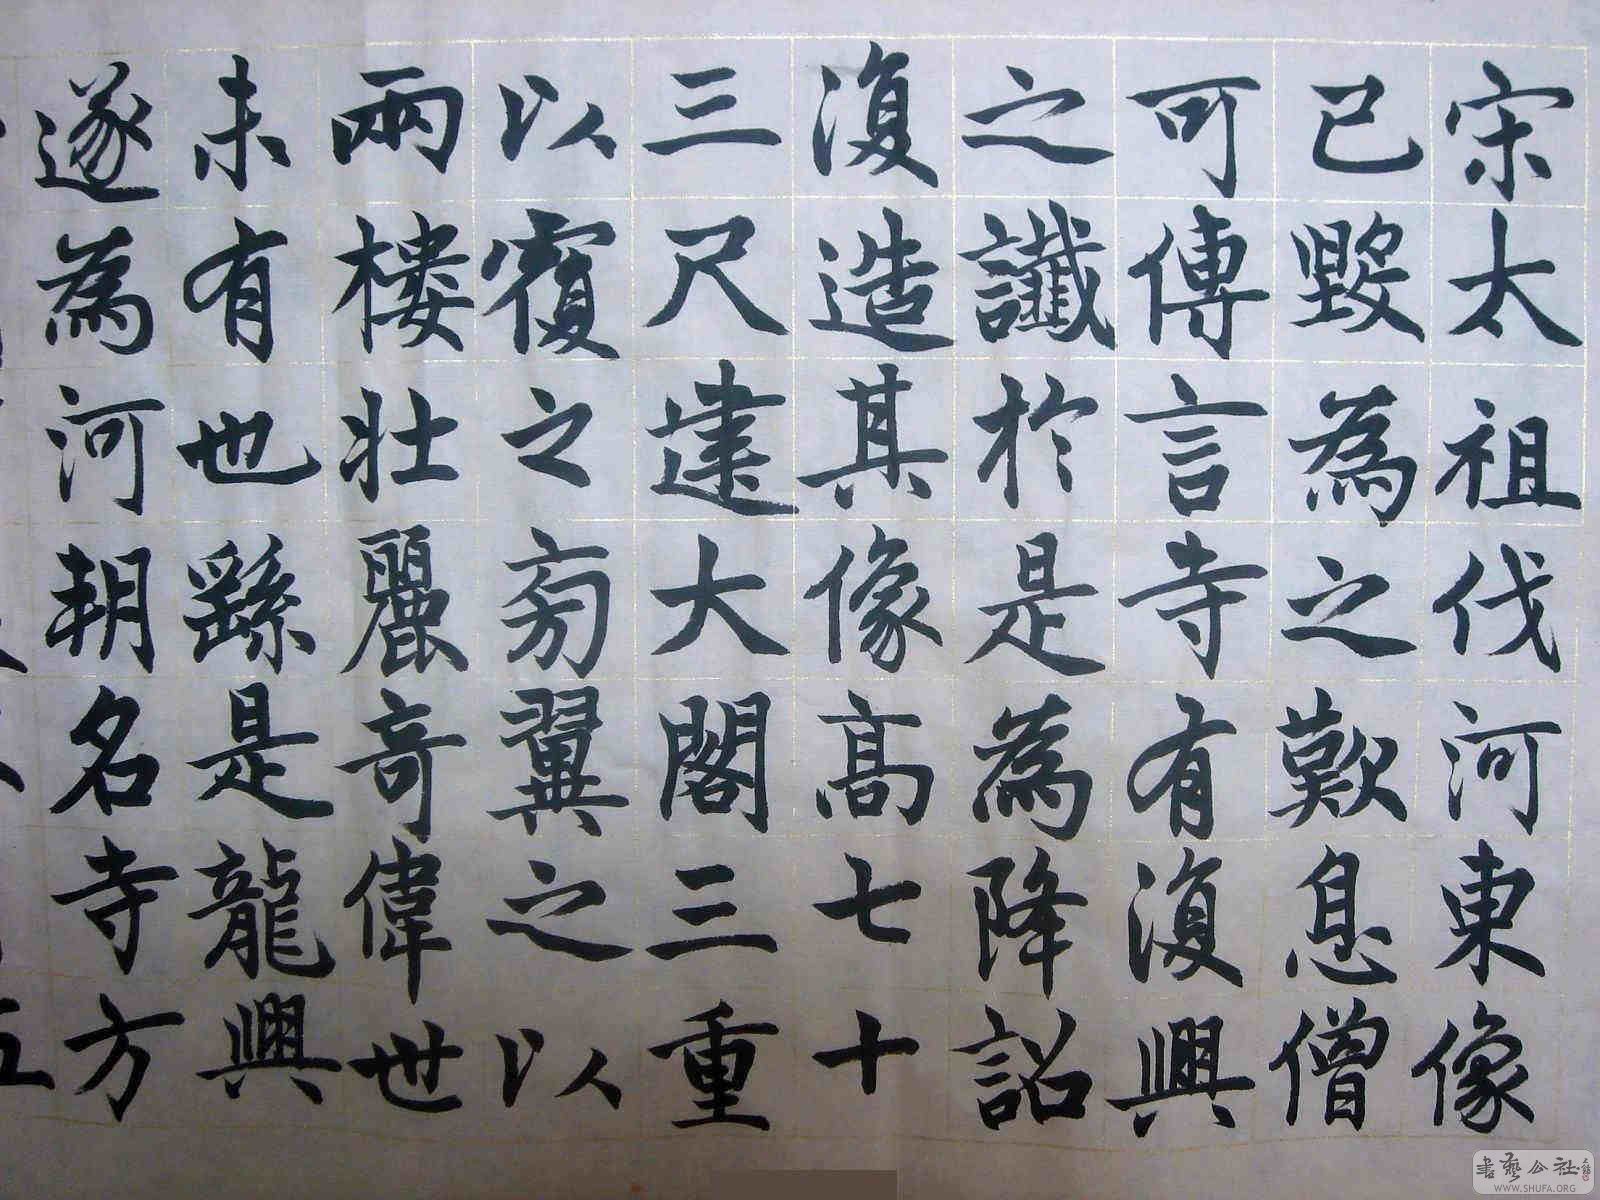 宋太祖伐河東像
已毀為之歎息僧
可傳言寺有復興
之讖於是為降詔
復造其像高七十
三尺建大閣三重
以覆之旁翼之以
兩樓壯麗奇偉世
未有也繇是龍興
遂為河朔名寺方
書藝公社
WWW.SHUFA.ORG